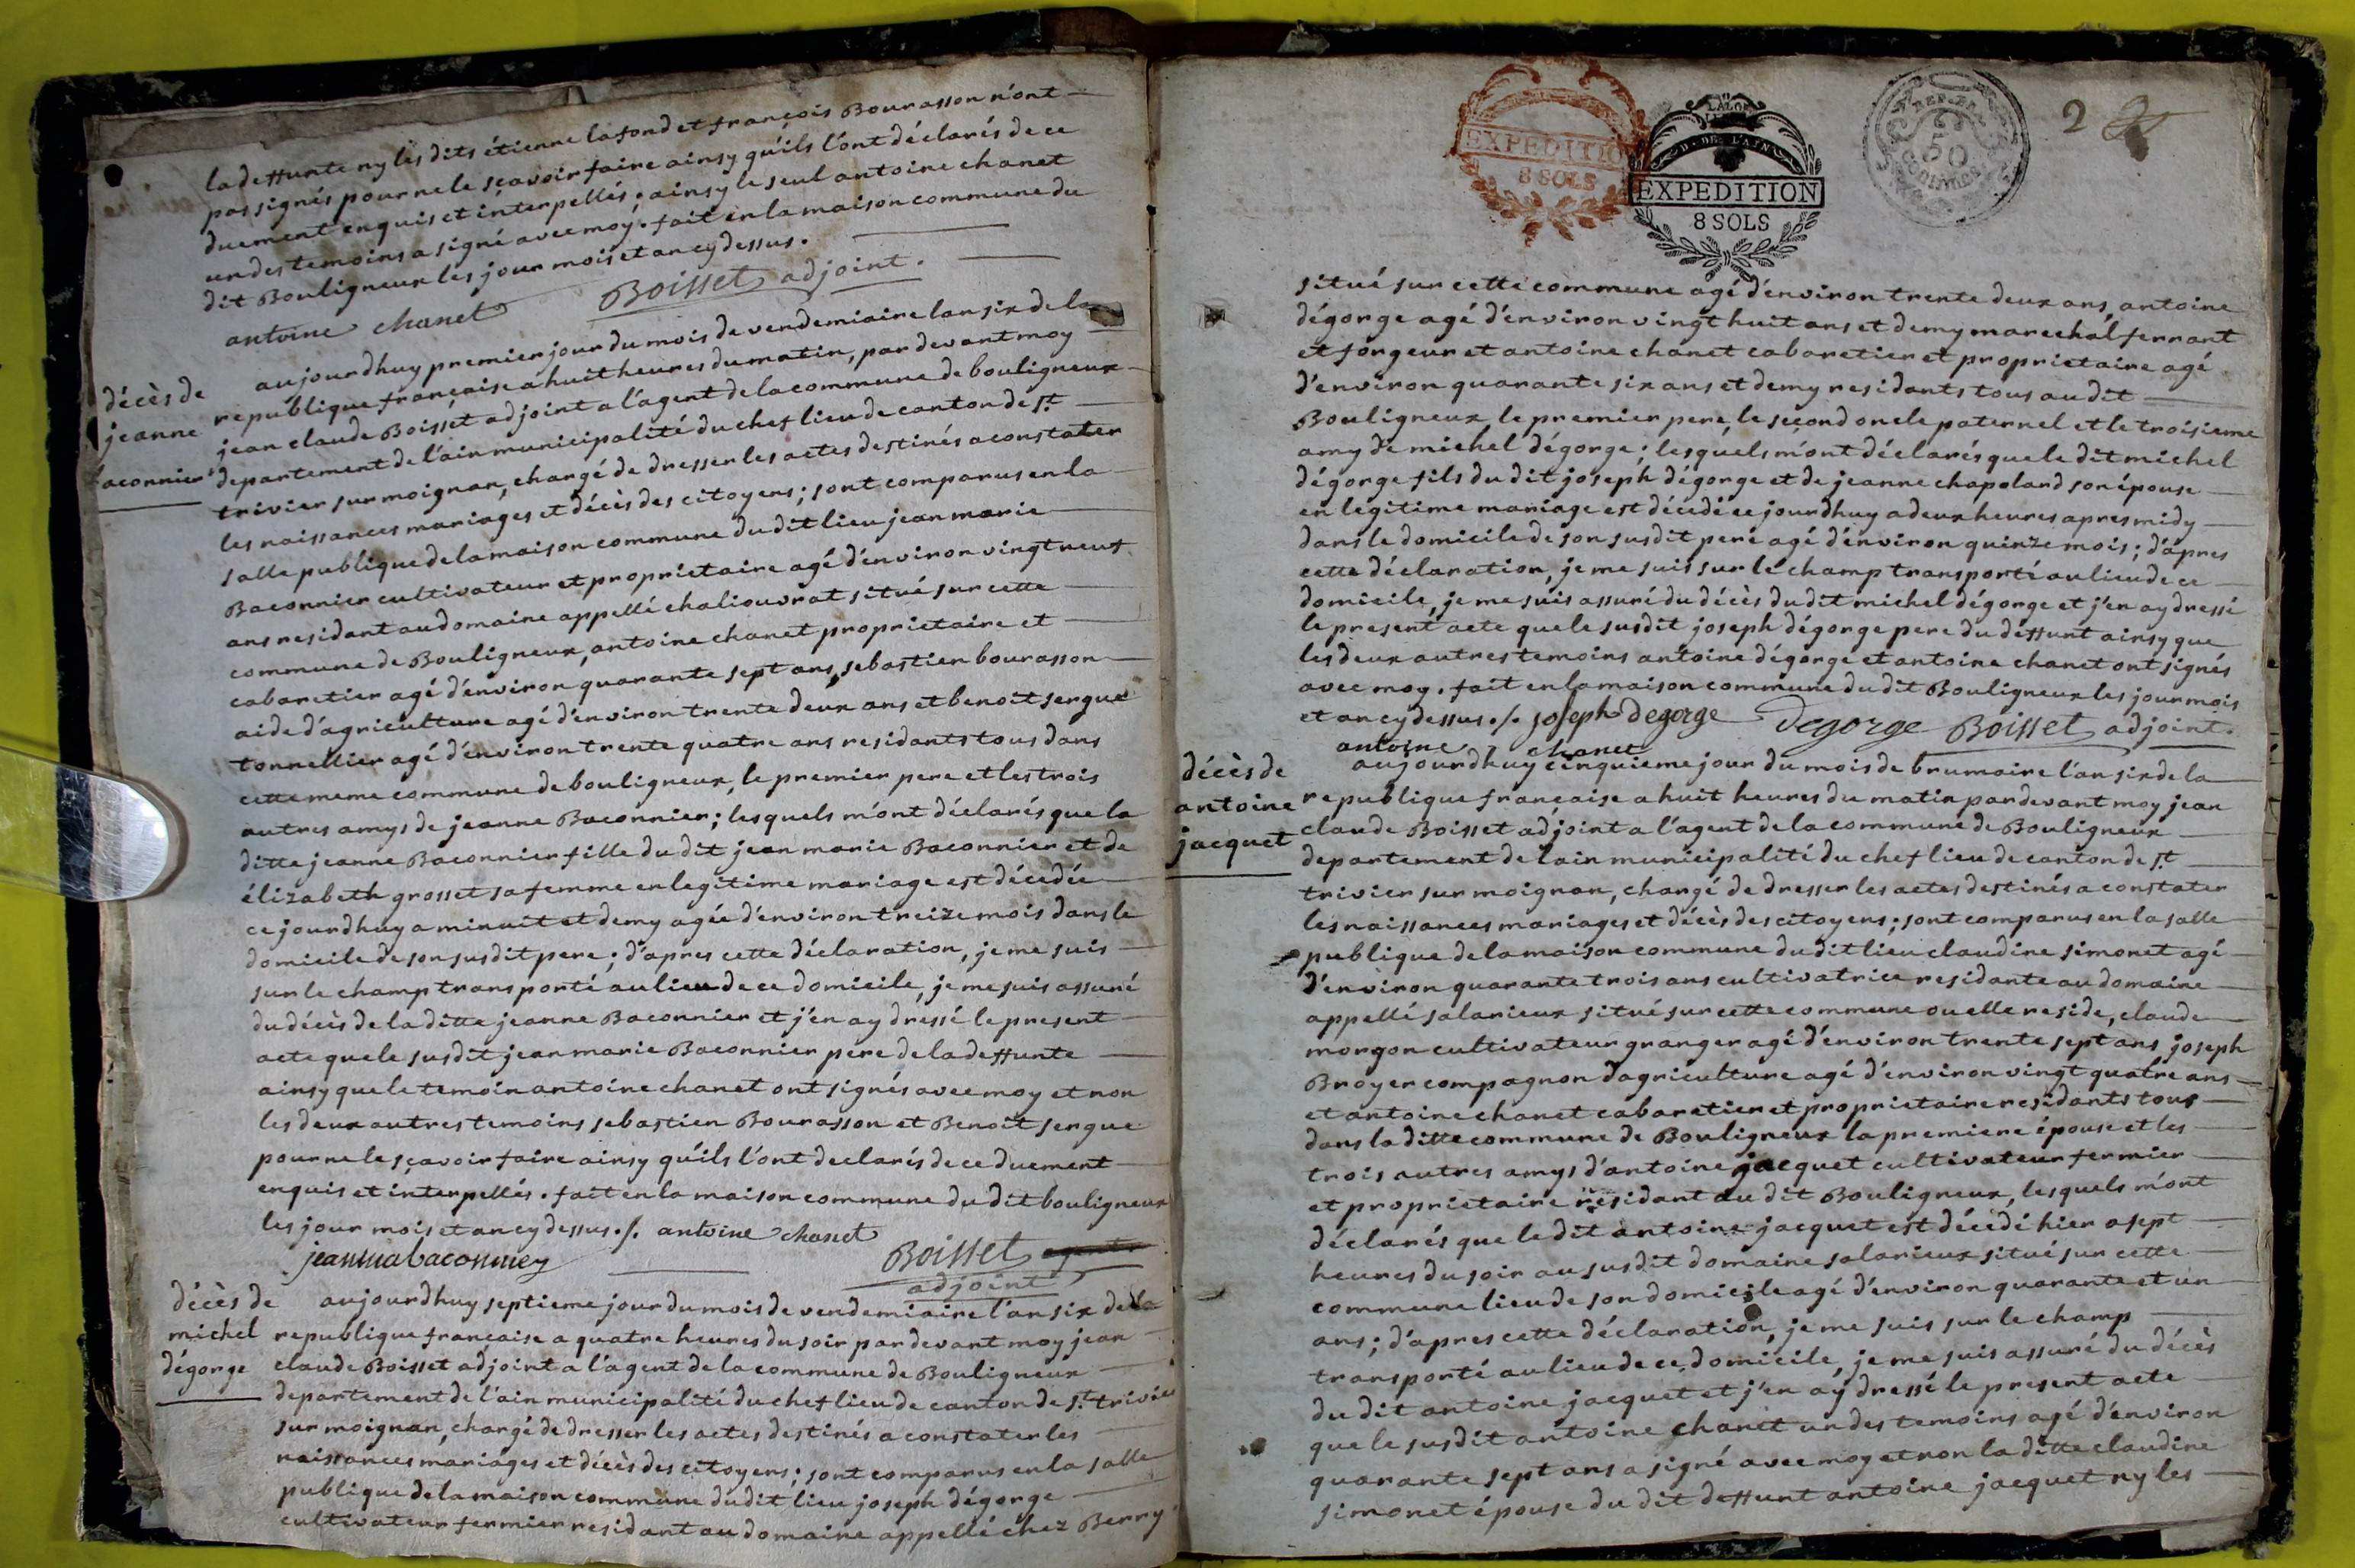 la deffunte ny les dits étienne lafond et françois Bourasson n'ont
pas signés pour ne le sçavoir faire ainsy qu'ils l'ont déclarés de ce
duement enquis et interpellés; ainsy le seul antoine chanet
un des temoins a signé avec moy. fait en la maison commune du
dit Bouligneux les jour mois et an cy dessus.
antoine chanet Boisset adjoint.
décès de
jeanne
baconnier
aujourdhuy premier jour du mois de vendemiaire l'an six de la
republique française a huit heures du matin, par devant moy
jean claude Boisset adjoint a l'agent de la commune de bouligneux
departement de l'ain municipalité du chef lieu de canton de st
trivier sur moignan, chargé de dresser les actes destinés a constater
les naissances mariages et décès des citoyens; sont comparus en la
salle publique de la maison commune du dit lieu jean marie
Baconnier cultivateur et proprietaire agé d'environ vingt neuf
ans residant au domaine appellé chaliouvrat situé sur cette
commune de Bouligneux, antoine chanet proprietaire et
cabaretier agé d'environ quarante sept ans, sebastien bourasson
aide d'agriculture agé d'environ trente deux ans et benoit sergue
tonnellier agé d'environ trente quatre ans residants tous dans
cette meme commune de bouligneux, le premier pere et les trois
autres amys de jeanne Baconnier; lesquels m'ont déclarés que la
ditte jeanne Baconnier fille du dit jean marie Baconnier et de
élizabeth grosset sa femme en legitime mariage est décedée
ce jourdhuy a minuit et demy agée d'environ treize mois dans le
domicile de son susdit pere; d'apres cette déclaration, je me suis
sur le champ transporté au lieu de ce domicile, je me suis assuré
du décès de la ditte jeanne Baconnier et j'en ay dressé le present
acte que le susdit jean marie Baconnier pere de la deffunte
ainsy que le temoin antoine chanet ont signés avec moy et non
les deux autres temoins sebastien Bourasson et Benoit sergue
pour ne le sçavoir faire ainsy qu'ils l'ont declarés de ce duement
enquis et interpellés. fait en la maison commune du dit bouligneux
les jour mois et an cy dessus ./. antoine chanet
jean ma baconnier Boisset
adjoint
décès de
michel
dégorge
aujourdhuy septieme jour du mois de vendemiaire l'an six de la
republique française a quatre heures du soir par devant moy jean
claude Boisset adjoint a l'agent de la commune de Bouligneux
departement de l'ain municipalité du chef lieu de canton de st trivier
sur moignan, chargé de dresser les actes destinés a constater les
naissances mariages et décès des citoyens; sont comparus en la salle
publique de la maison commune du dit lieu joseph dégorge
cultivateur fermier residant au domaine appellé chez Berry
EXPEDITION
8 SOLS
LA LOI
D. DE L'AIN
EXPEDITION
8 SOLS
REP. FRA
50
CENTIMES
2
situé sur cette commune agé d'environ trente deux ans, antoine
dégorge agé d'environ vingt huit ans et demy marechal ferrant
et forgeur et antoine chanet cabaretier et proprietaire agé
d'environ quarante six ans et demy residants tous au dit
Bouligneux, le premier pere, le second oncle paternel et le troisieme
amy de michel dégorge; lesquels m'ont déclarés que le dit michel
dégorge fils du dit joseph dégorge et de jeanne chapeland son épouse
en legitime mariage est décedé ce jourdhuy a deux heures apres midy
dans le domicile de son susdit pere agé d'environ quinze mois; d'apres
cette déclaration, je me suis sur le champ transporté au lieu de ce
domicile, je me suis assuré du décès du dit michel dégorge et j'en ay dressé
le present acte que le susdit joseph dégorge pere du deffunt ainsy que
les deux autres temoins antoine dégorge et antoine chanet ont signés
avec moy. fait en la maison commune du dit Bouligneux les jour mois
et an cy dessus ./. joseph Degorge Degorge Boisset adjoint.
antoine chanet
décès de
antoine
jacquet
aujourdhuy cinquieme jour du mois de brumaire l'an six de la
republique française a huit heures du matin par devant moy jean
claude Boisset adjoint a l'agent de la commune de Bouligneux
departement de l'ain municipalité du chef lieu de canton de st
trivier sur moignan, chargé de dresser les actes destinés a constater
les naissances mariages et décès des citoyens; sont comparus en la salle
publique de la maison commune du dit lieu claudine simonet agé
d'environ quarante trois ans cultivatrice residante au domaine
appellé salarieux situé sur cette commune ou elle reside, claude
morgon cultivateur granger agé d'environ trente sept ans, joseph
Broyer compagnon d'agriculture agé d'environ vingt quatre ans
et antoine chanet cabaretier et proprietaire residants tous
dans la ditte commune de Bouligneux la premiere épouse et les
trois autres amys d'antoine jacquet cultivateur fermier
et proprietaire residant au dit Bouligneux, lesquels m'ont
déclarés que le dit antoine jacquet est décedé hier a sept
heures du soir au susdit domaine salarieux situé sur cette
commune lieu de son domicile agé d'environ quarante et un
ans; d'apres cette déclaration, je me suis sur le champ
transporté au lieu de ce domicile, je me suis assuré du décès
du dit antoine jacquet et j'en ay dressé le present acte
que le susdit antoine chanet un des temoins agé d'environ
quarante sept ans a signé avec moy et non la ditte claudine
simonet épouse du dit deffunt antoine jacquet ny les